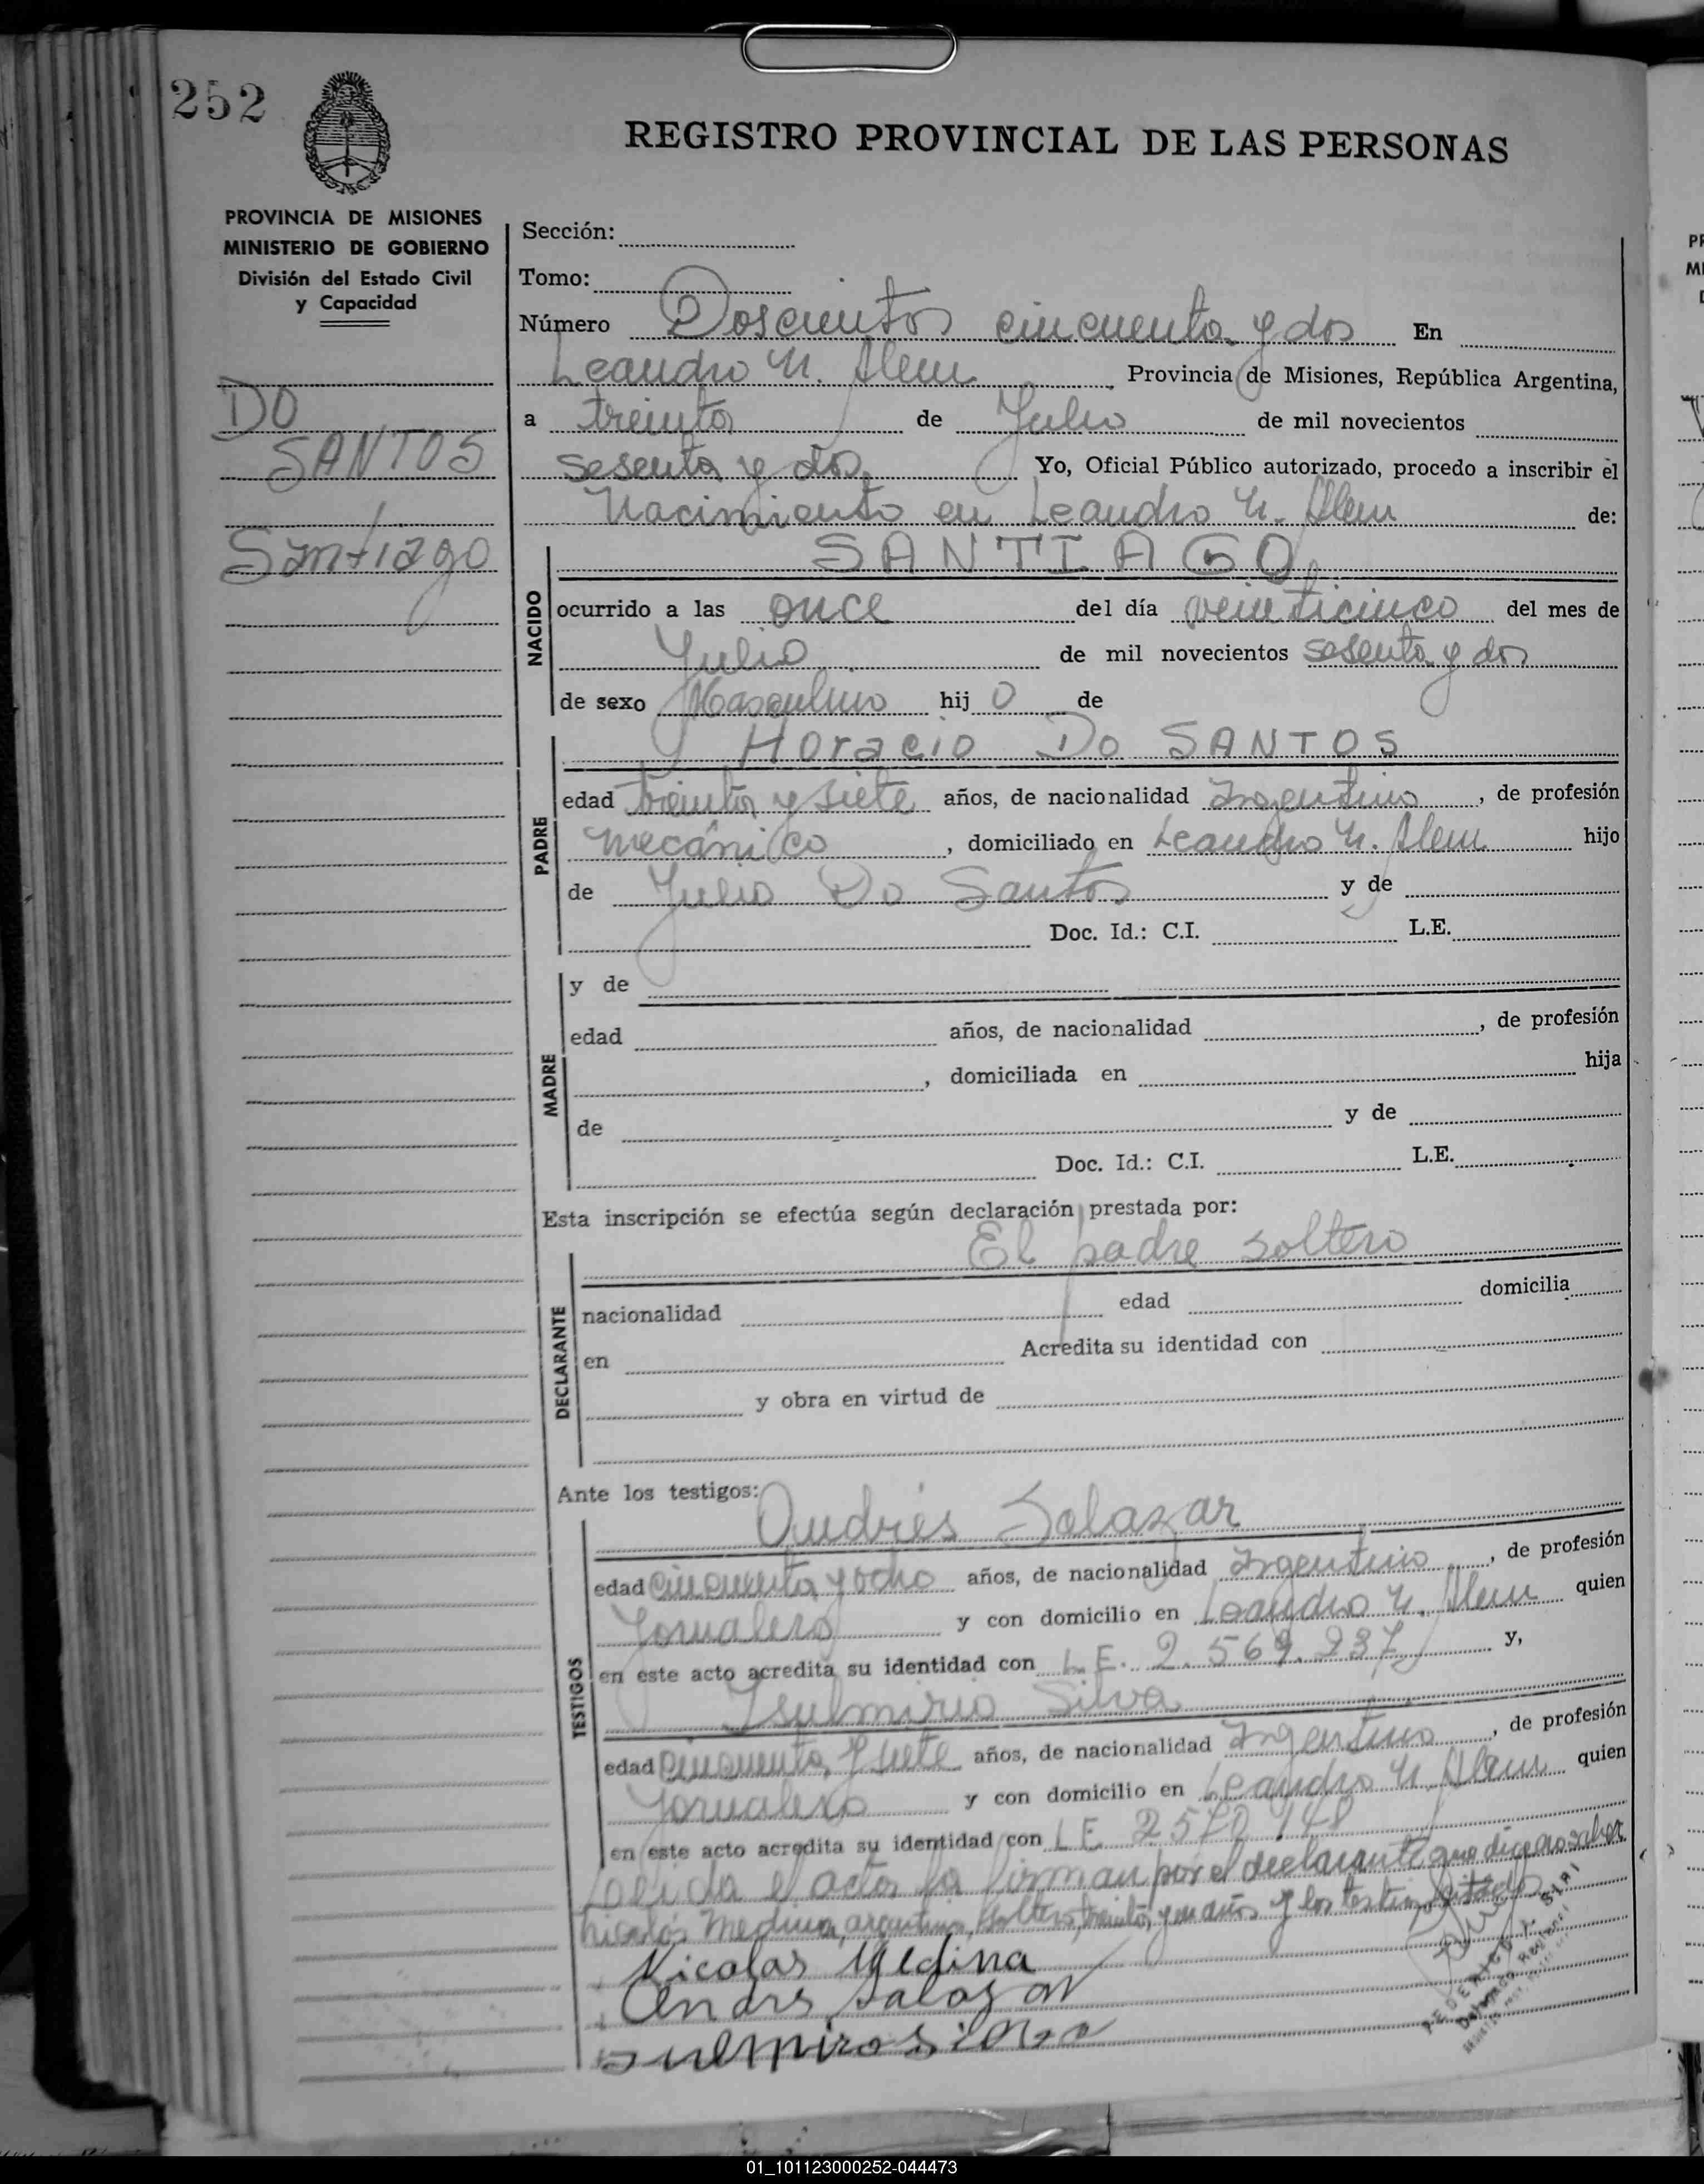 252
REGISTRO PROVINCIAL DE LAS PERSONAS
PROVINCIA DE MISIONES
MINISTERIO DE GOBIERNO
División del Estado Civil
y Capacidad
DO
SANTOS
Santiago
Sección:
Tomo:
Número Doscientos cincuenta y dos En
Leandro N. Alem Provincia de Misiones, República Argentina,
a treinta de Julio de mil novecientos
sesenta y dos Yo, Oficial Público autorizado, procedo a inscribir el
Nacimiento en Leandro N. Alem de:
NACIDO
SANTIAGO
ocurrido a las once del día veinticinco del mes de
Julio de mil novecientos sesenta y dos
de sexo Masculino hijo de
PADRE
Horacio Do SANTOS
edad treinta y siete años, de nacionalidad Argentino, de profesión
mecánico, domiciliado en Leandro N. Alem hijo
de Julio Do Santos y de
Doc. Id.: C.I. L.E.
MADRE
y de
edad años, de nacionalidad , de profesión
, domiciliada en hija
de y de
Doc. Id.: C.I. L.E.
Esta inscripción se efectúa según declaración prestada por:
DECLARANTE
El padre soltero
nacionalidad edad domicilia
en Acredita su identidad con
y obra en virtud de
Ante los testigos:
TESTIGOS
Andrés Salazar
edad cincuenta y ocho años, de nacionalidad Argentino, de profesión
Jornalero y con domicilio en Leandro N. Alem quien
en este acto acredita su identidad con L.E. 2.569.237 y,
Silva
edad cincuenta y siete años, de nacionalidad Argentino, de profesión
Jornalero y con domicilio en Leandro N. Alem quien
en este acto acredita su identidad con L E 2570148
Leída el acta la firman por el declarante que dice no saber
Nicolás Medina, argentino, soltero, treinta y un años y los testigos citados
Nicolas Medina
Andrs Salazar
01_101123000252-044473